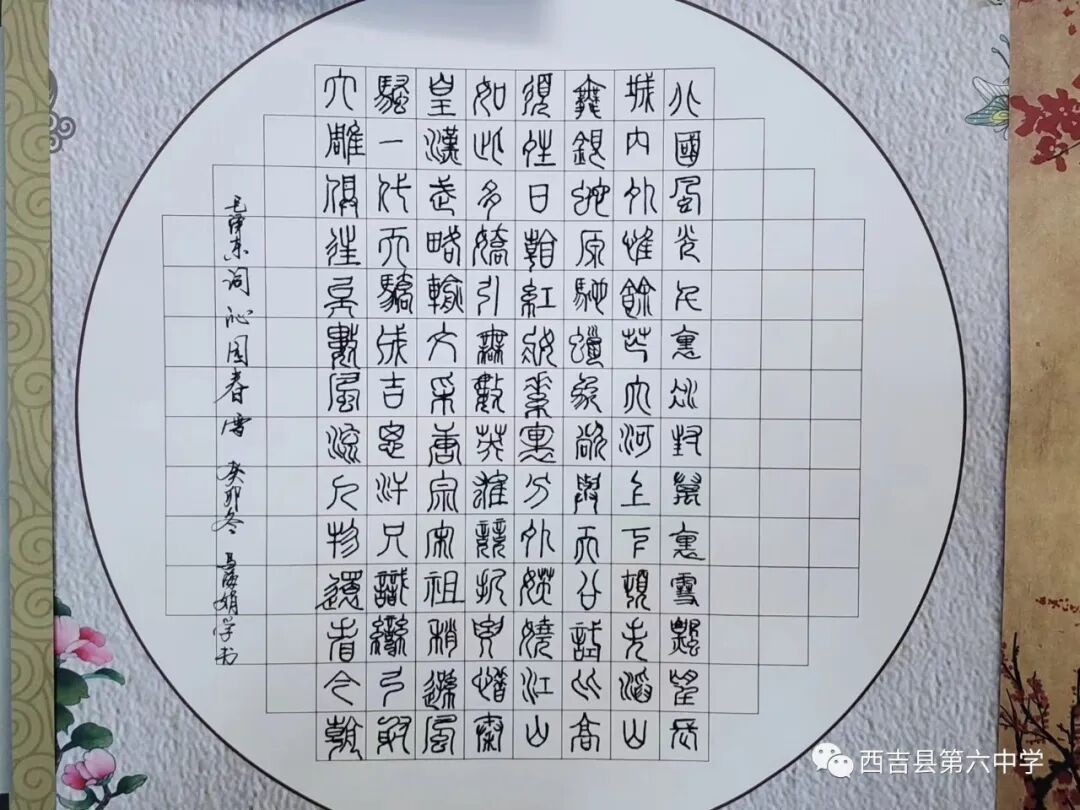 北國風光千裏冰封萬裏雪飄望長
城內外惟餘莽大河上下頓失滔山
舞銀蛇原馳蠟象欲與天公試比高
須晴日看紅妝素裹分外妖嬈江山
如此多嬌引無數英雄競折腰惜秦
皇漢武略輸文采唐宗宋祖稍遜風
騷一代天驕成吉思汗只識彎弓射
大雕俱往矣數風流人物還看今朝
毛泽东词沁园春雪 癸卯冬 马海娟学书
西吉县第六中学